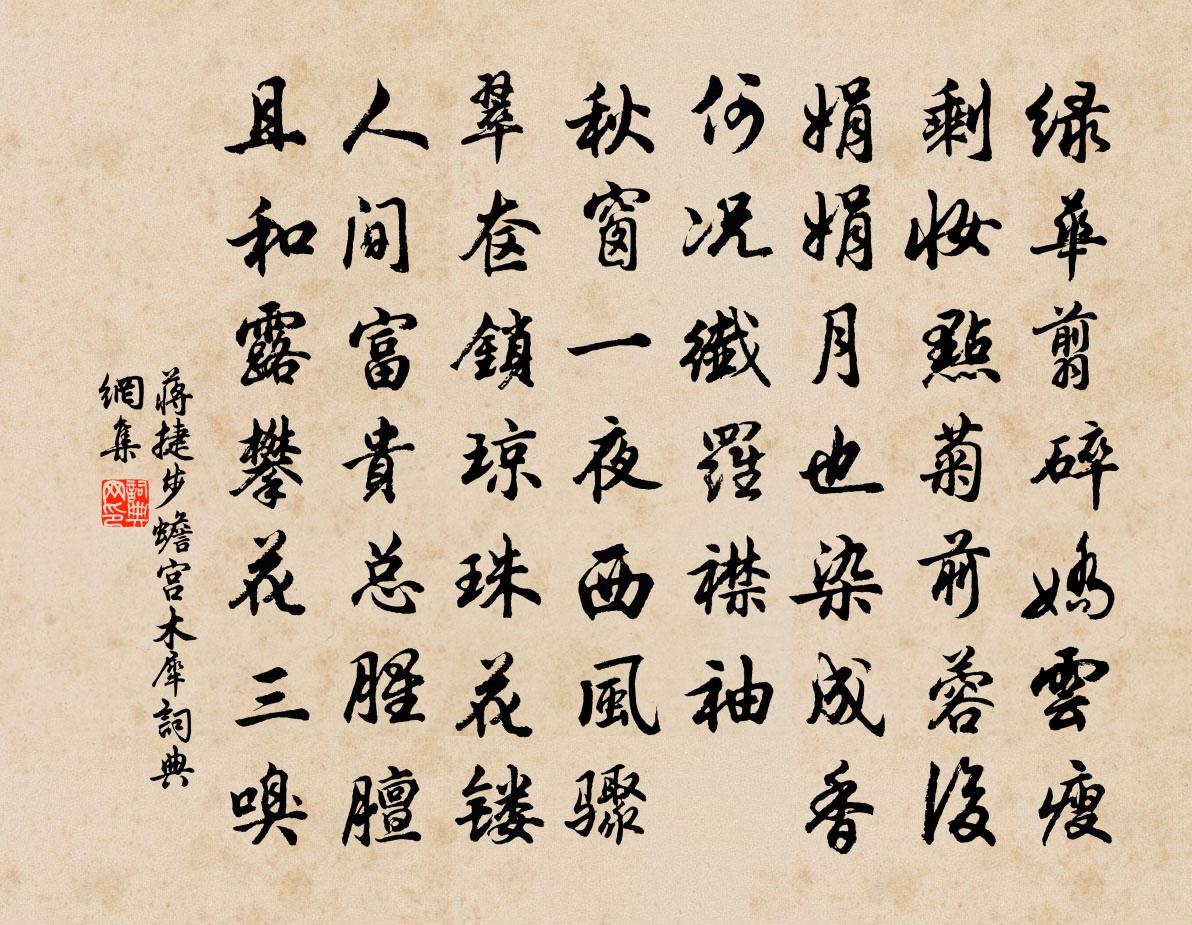 绿華翦碎嬌雲瘦
剩妝點菊前蓉後
娟娟月也染成香
何况纖羅襟袖
秋窗一夜西風驟
翠奁鎖琼珠花镂
人间富貴总腥膻
且和露攀花三嗅
蒋捷步蟾宫木犀詞典
網集
詞典网印